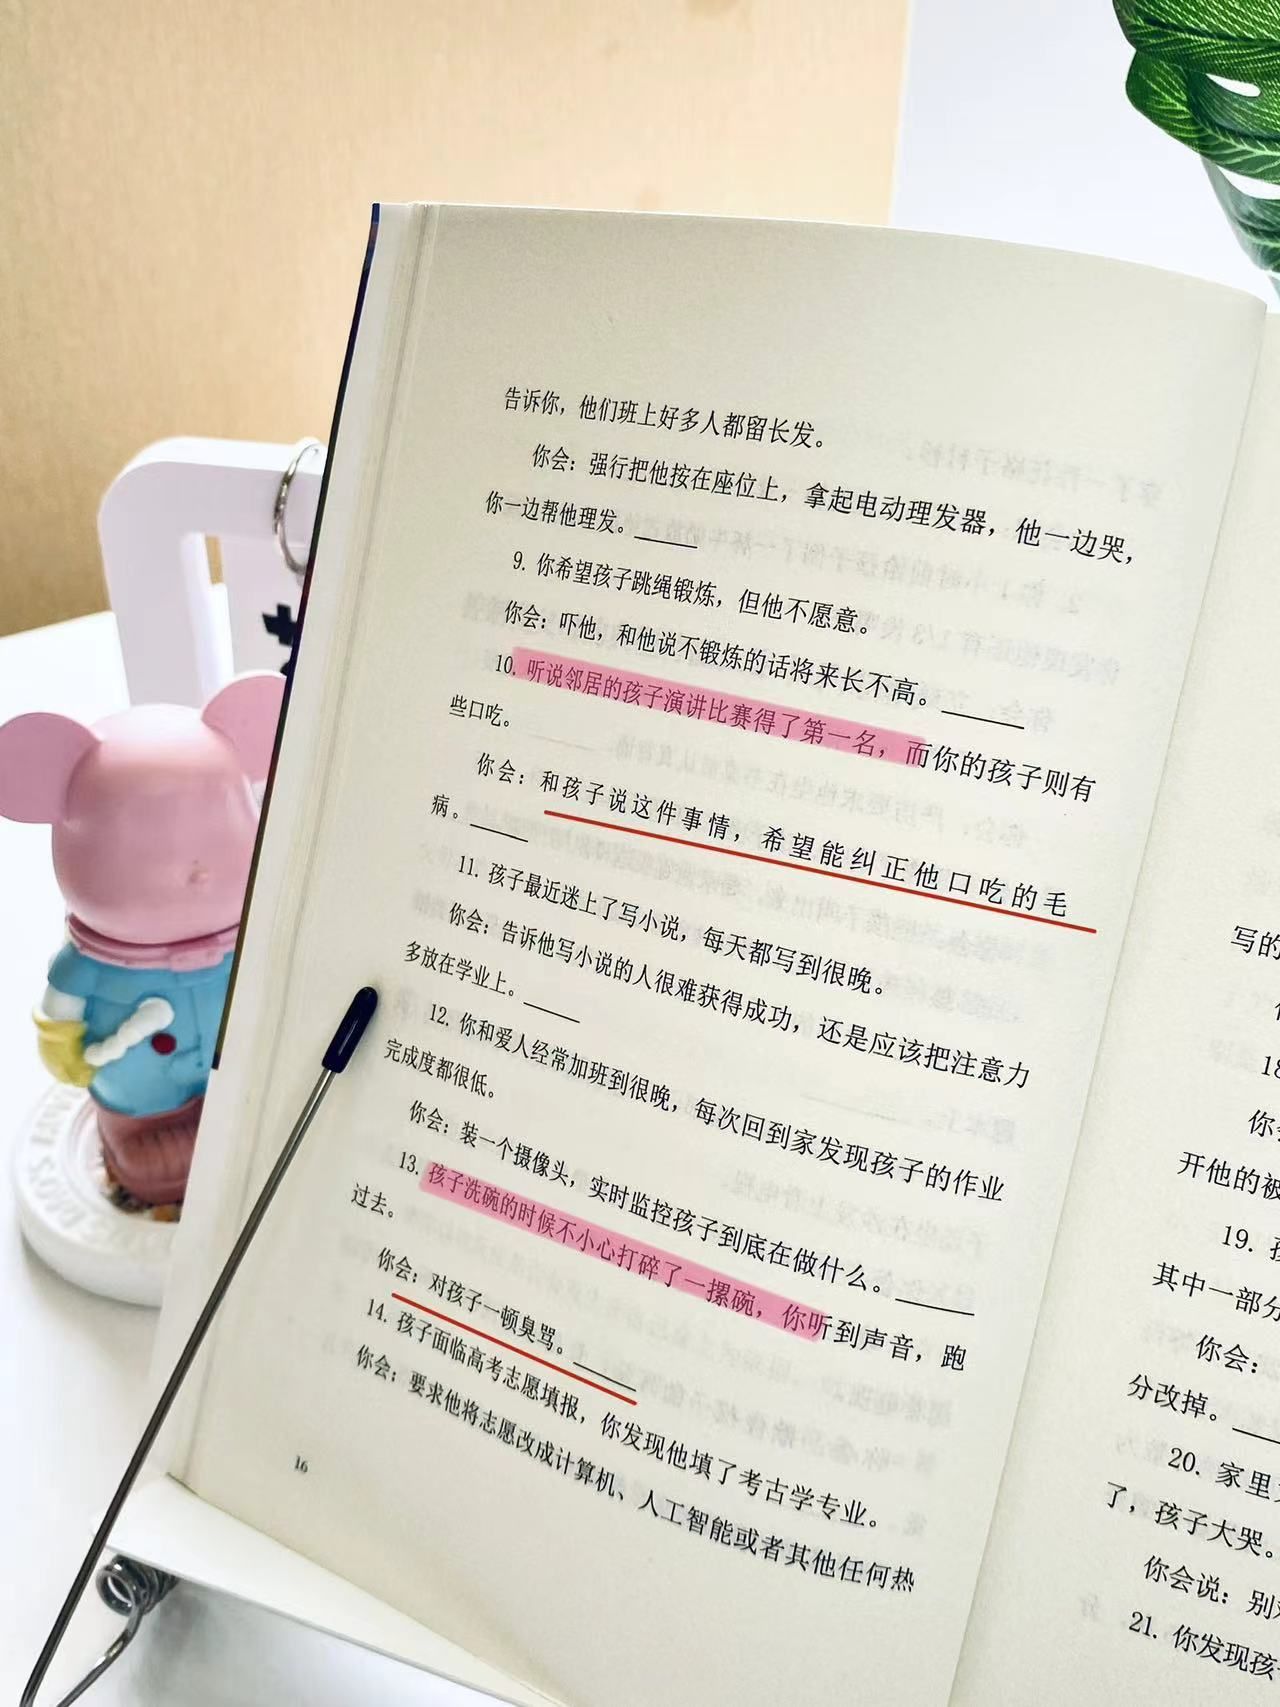 告诉你，他们班上好多人都留长发。
你会：强行把他按在座位上，拿起电动理发器，他一边哭，
你一边帮他理发。
9. 你希望孩子跳绳锻炼，但他不愿意。
你会：吓他，和他说不锻炼的话将来长不高。
10. 听说邻居的孩子演讲比赛得了第一名，而你的孩子则有
些口吃。
你会：和孩子说这件事情，希望能纠正他口吃的毛
病。
11. 孩子最近迷上了写小说，每天都写到很晚。
你会：告诉他写小说的人很难获得成功，还是应该把注意力
多放在学业上。
12. 你和爱人经常加班到很晚，每次回到家发现孩子的作业
完成度都很低。
你会：装一个摄像头，实时监控孩子到底在做什么。
13. 孩子洗碗的时候不小心打碎了一摞碗，你听到声音，跑
过去。
你会：对孩子一顿臭骂。
14. 孩子面临高考志愿填报，你发现他填了考古学专业。
你会：要求他将志愿改成计算机、人工智能或者其他任何热
16
写的
18
你
开他的被
19.
其中一部分
你会：
分改掉。
20. 家里
了，孩子大哭。
你会说：别
21. 你发现孩